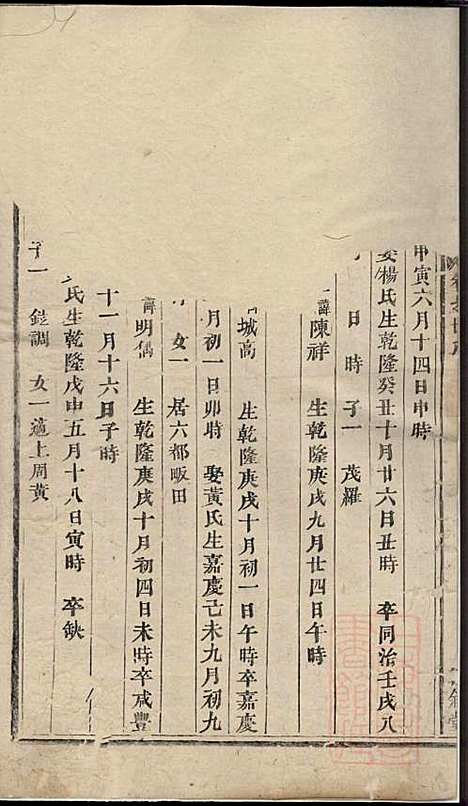 甲寅六月十四日申時
娶楊氏生乾隆癸丑十月廿六日丑時 卒同治壬戌八
日時 子一 茂羅
一諱陳祥 生乾隆庚戌九月廿四日午時
城高 生乾隆庚戌十月初一日午時卒嘉慶
月初一日卯時 娶黃氏生嘉慶己未九月初九
女一 居六都畈田
諱明儁 生乾隆庚戌十月初四日未時卒咸豐
十一月十六日子時
氏生乾隆戊申五月十八日寅時 卒缺
子一 鎧調 女一適上周黃